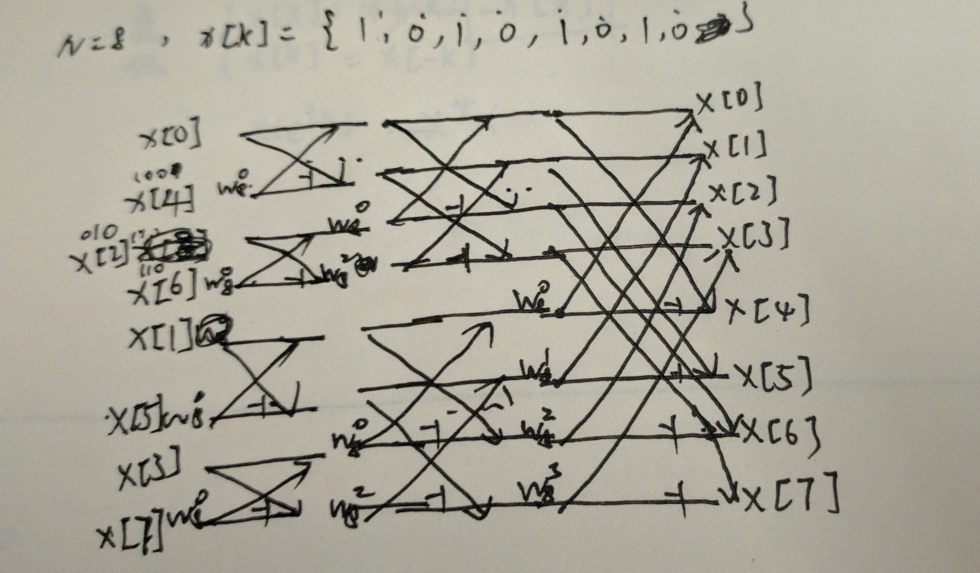 N=8, x[k]={1,0,1,0,1,0,1,0}
x[0] X[0]
100
x[4] W8^0 -1 X[1]
010 W8^0 X[2]
x[2] -1
110 X[3]
x[6] W8^0 -1 W8^2 -1
W8^0 -1 X[4]
x[1]
W8^1 -1 X[5]
x[5] W8^0 -1
W8^0 -1 W8^2 -1 X[6]
x[3]
W8^2 -1 W8^3 -1 X[7]
x[7] W8^0 -1